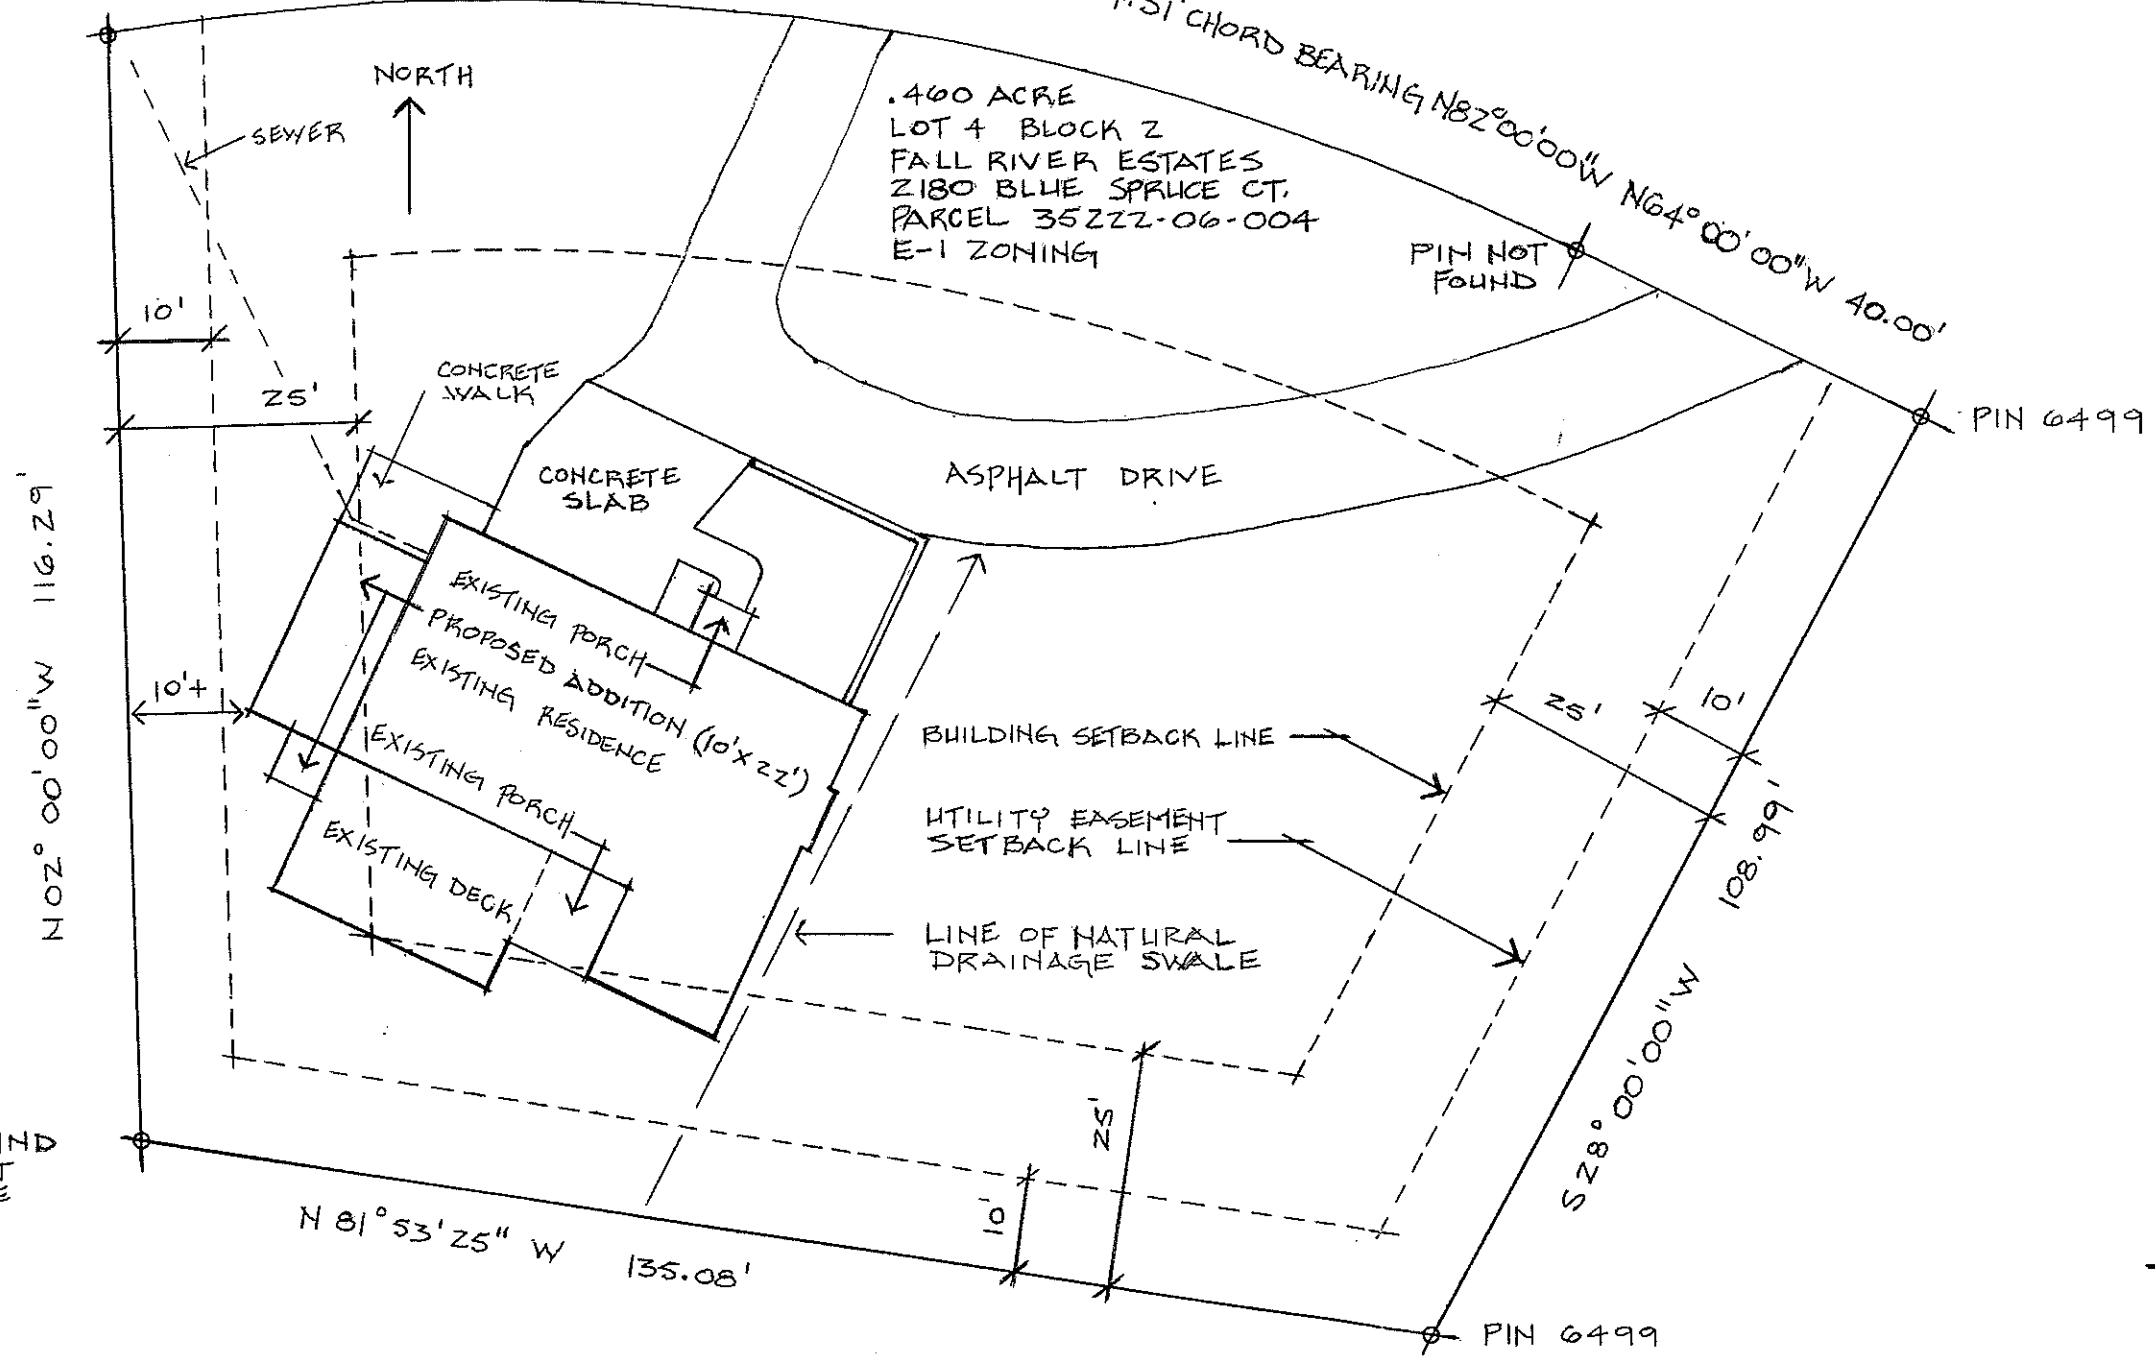 CHORD BEARING N82°00'00"W N64°00'00"W 40.00'
NORTH
SEWER
.460 ACRE
LOT 4 BLOCK 2
FALL RIVER ESTATES
2180 BLUE SPRUCE CT.
PARCEL 35222-06-004
E-1 ZONING
PIN NOT
FOUND
10'
25'
CONCRETE
WALK
PIN 6499
CONCRETE
SLAB
ASPHALT DRIVE
N02°00'00"W 116.29'
EXISTING PORCH
PROPOSED ADDITION (10'X22')
EXISTING RESIDENCE
10'+
EXISTING PORCH
EXISTING DECK
BUILDING SETBACK LINE
25'
10'
UTILITY EASEMENT
SETBACK LINE
108.99'
LINE OF NATURAL
DRAINAGE SWALE
S28°00'00"W
25'
10'
N81°53'25"W 135.08'
PIN 6499